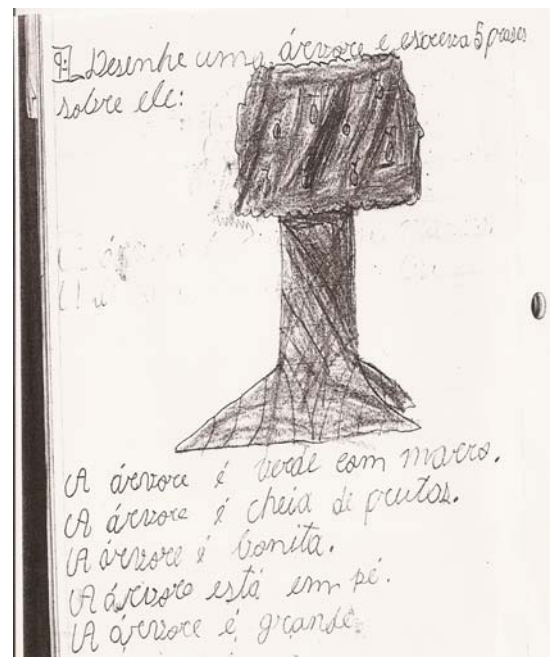 9: Desenhe uma árvore e escreva 5 frases
sobre ele:
A árvore é verde com marro.
A árvore é cheia de frutas.
A árvore é bonita.
A árvore está em pé.
A árvore é grande.